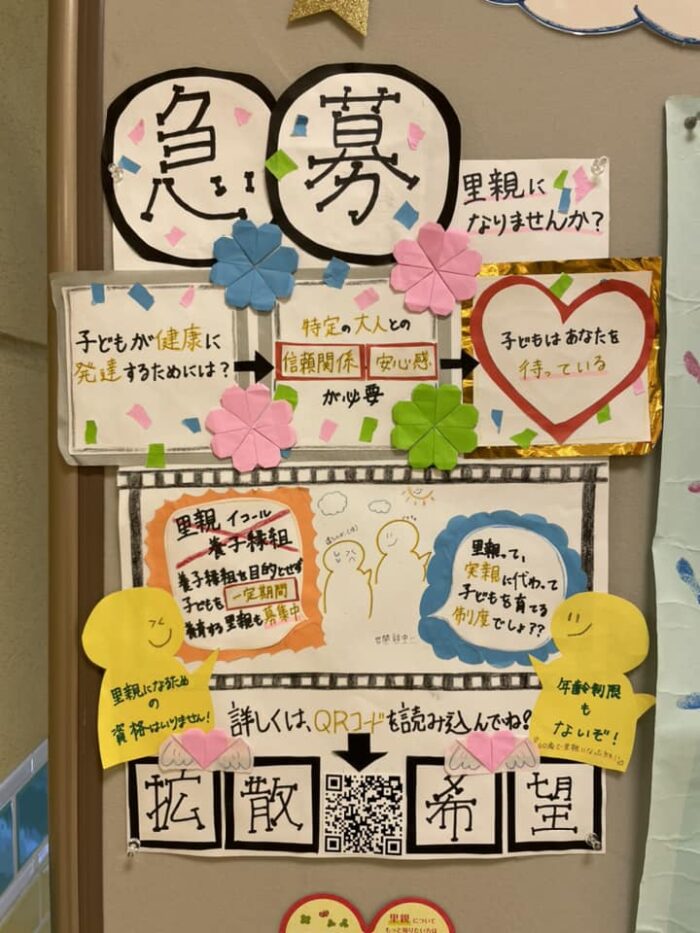 急募
里親に
なりませんか？
子どもが健康に
発達するためには？
特定の大人との
信頼関係 安心感
が必要
子どもはあなたを
待っている
里親 イコール
養子縁組
養子縁組を目的とせず
子どもを 一定期間
養育する里親も募集中
里親って、
実親に代わって
子どもを育てる
制度でしょ??
里親になるため
の
資格はいりません！
年齢制限
も
ないぞ！
詳しくは、QRコードを読み込んでね！
拡散 希望
里親について
もっと知りたい方は